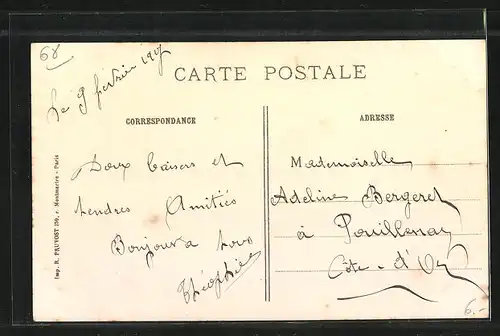 68
Le 9 février 1907
CARTE POSTALE
CORRESPONDANCE
ADRESSE
Doux baisers et
tendres Amitiés
Bonjour à tous
Théophile
Mademoiselle
Adeline Bergeret
à Pouillenay
Côte-d'Or
Imp. R. PRUVOST 159, r. Montmartre - Paris
6.-